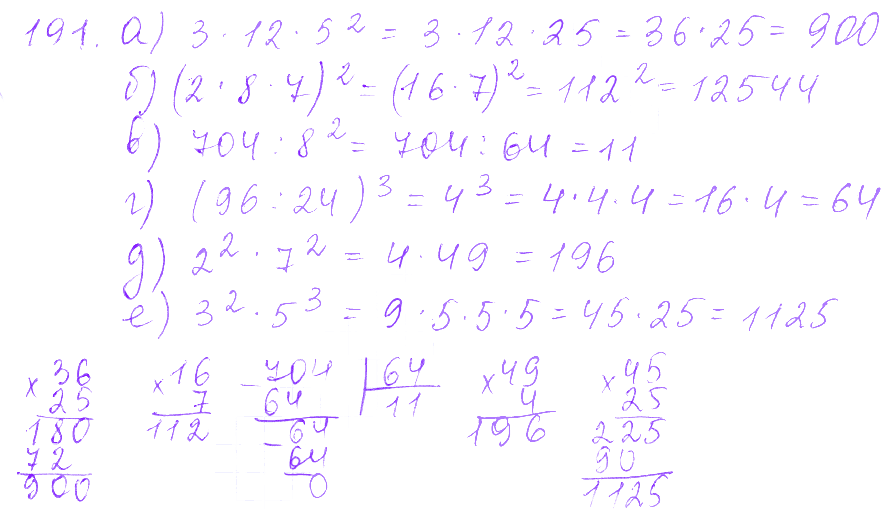 191. а) 3 · 12 · 5² = 3 · 12 · 25 = 36 · 25 = 900
б) (2 · 8 · 7)² = (16 · 7)² = 112² = 12544
в) 704 : 8² = 704 : 64 = 11
г) (96 : 24)³ = 4³ = 4 · 4 · 4 = 16 · 4 = 64
д) 2² · 7² = 4 · 49 = 196
е) 3² · 5³ = 9 · 5 · 5 · 5 = 45 · 25 = 1125
× 36
25
180
72
900
× 16
7
112
− 704 | 64
64 11
− 64
64
0
× 49
4
196
× 45
25
225
90
1125